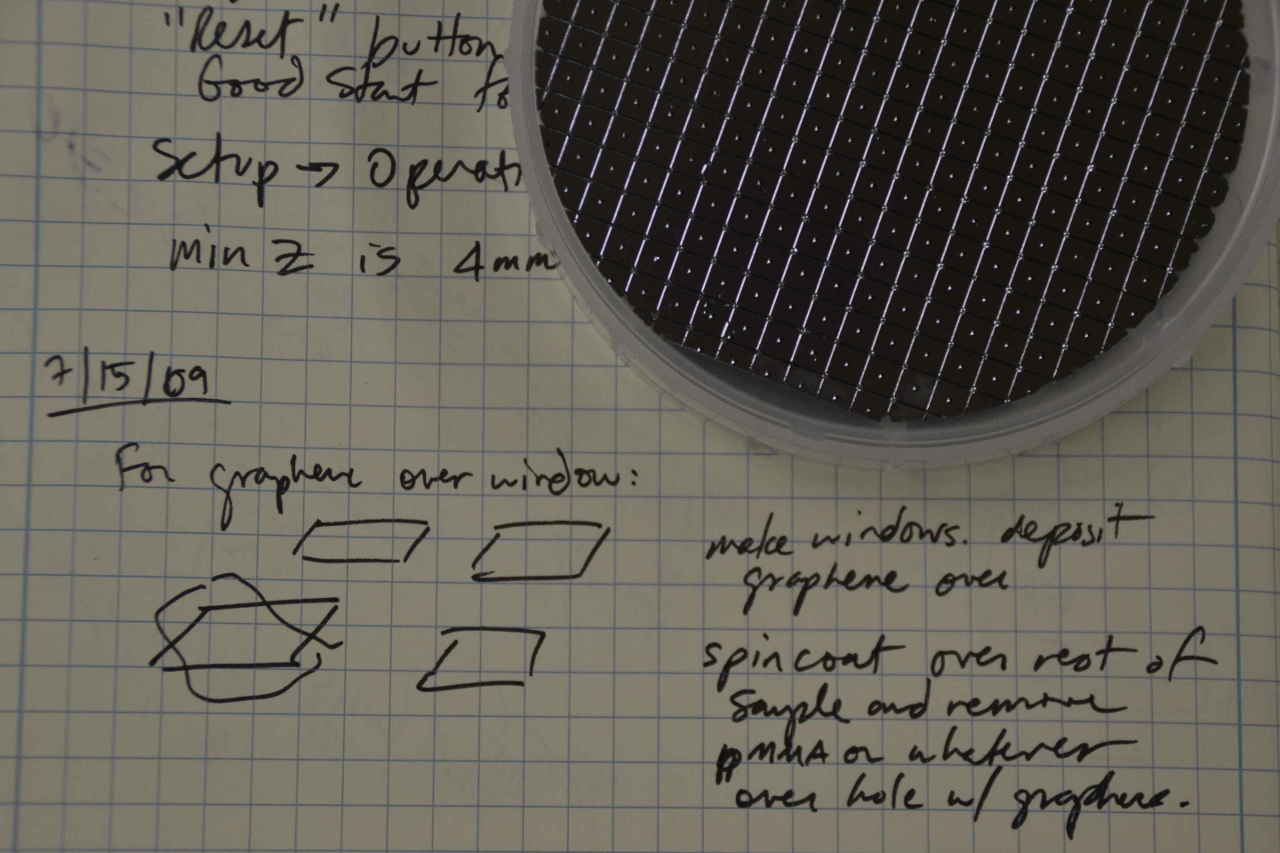 "Reset" button
Good start fo
Setup → Operati
min Z is 4mm
7/15/09
For graphene over window:
make windows. deposit
graphene over
spin coat over rest of
sample and remove
PMMA or whatever
over hole w/ graphene.